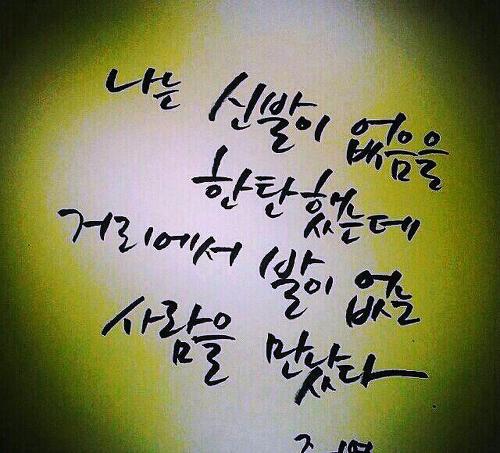 나는 신발이 없음을
한탄했는데
거리에서 발이 없는
사람을 만났다